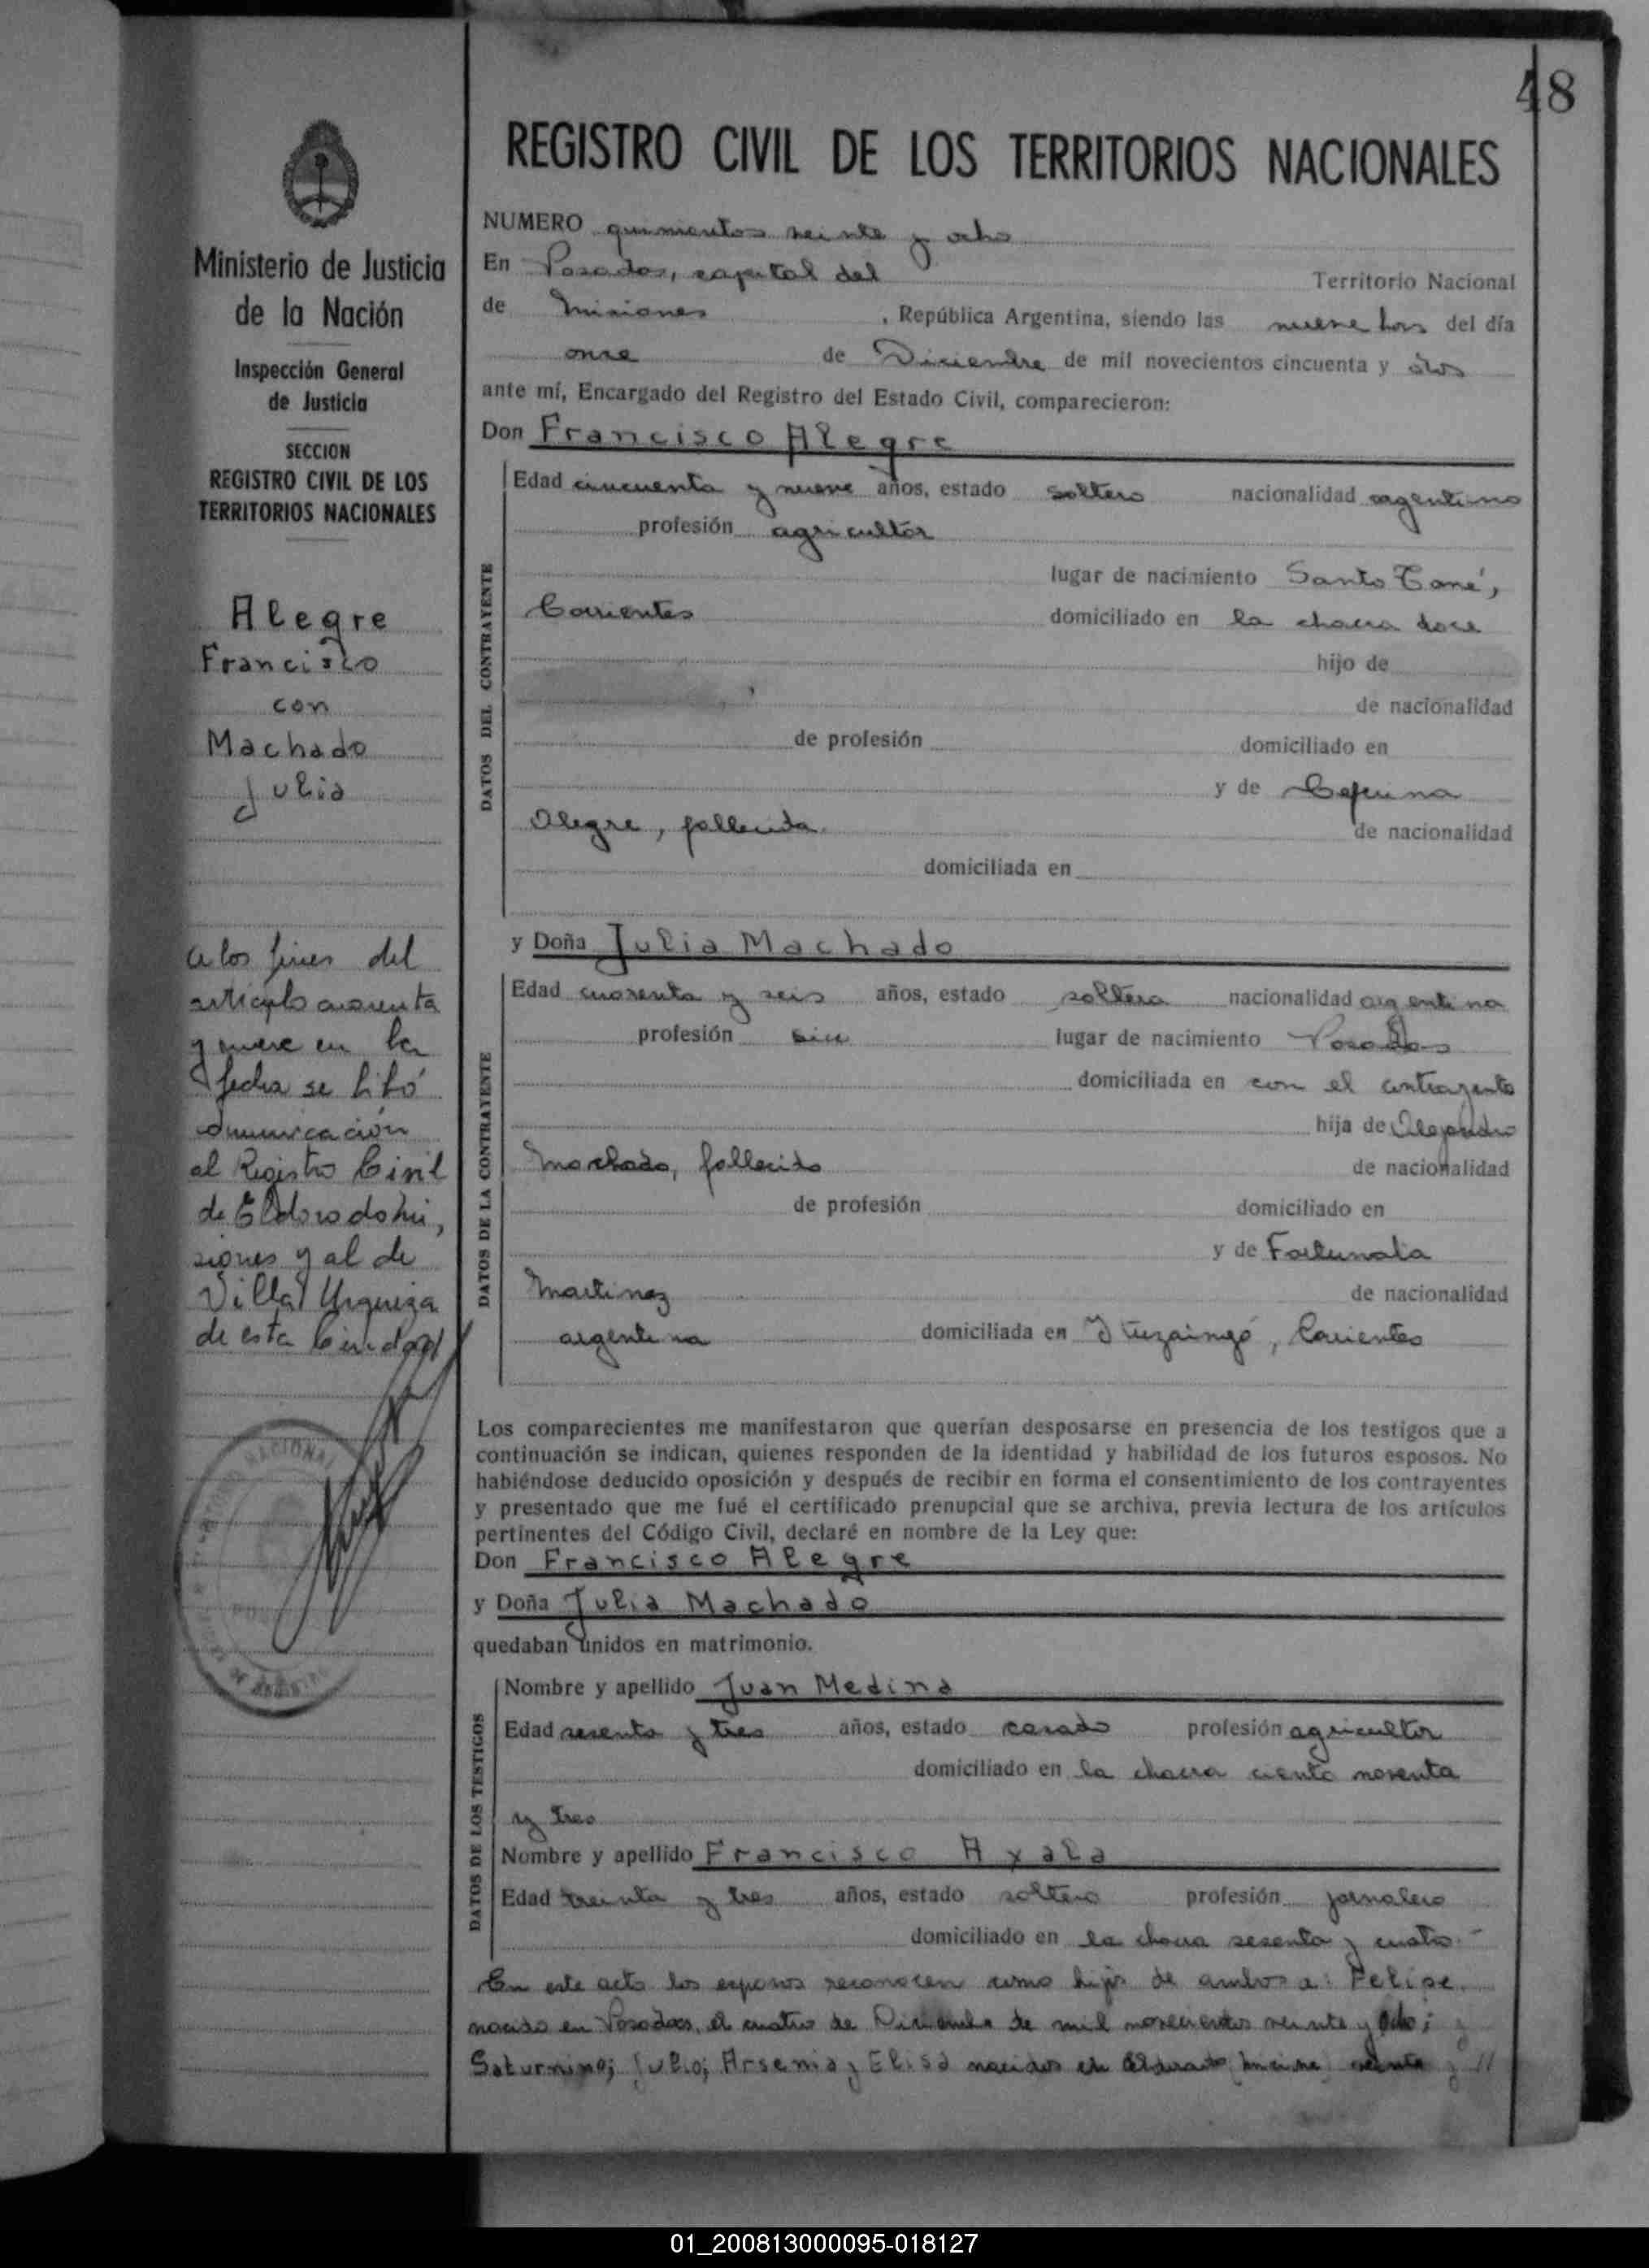 48
REGISTRO CIVIL DE LOS TERRITORIOS NACIONALES
Ministerio de Justicia
de la Nación
Inspección General
de Justicia
SECCION
REGISTRO CIVIL DE LOS
TERRITORIOS NACIONALES
Alegre
Francisco
con
Machado
Julia
a los fines del
artículo cuarenta
y nueve en la
fecha se libró
comunicación
al Registro Civil
de Eldorado Mi,
siones y al de
Villa Urquiza
de esta Ciudad
NUMERO quinientos veinte y ocho
En Posadas, capital del Territorio Nacional
de Misiones, República Argentina, siendo las nueve hors del día
once de Diciembre de mil novecientos cincuenta y dos
ante mí, Encargado del Registro del Estado Civil, comparecieron:
Don Francisco Alegre
DATOS DEL CONTRAYENTE
Edad cincuenta y nueve años, estado soltero nacionalidad argentino
profesión agricultor
lugar de nacimiento Santo Tomé,
Corrientes domiciliado en la chacra doce
hijo de
de nacionalidad
de profesión domiciliado en
y de Ceferina
Alegre, fallecida. de nacionalidad
domiciliada en
y Doña Julia Machado
DATOS DE LA CONTRAYENTE
Edad cuarenta y seis años, estado soltera nacionalidad argentina
profesión lugar de nacimiento Posadas
domiciliada en con el contrayente
hija de Alejandro
Machado, fallecido de nacionalidad
de profesión domiciliado en
y de Fortunata
Martinez de nacionalidad
argentina domiciliada en Ituzaingó, Corrientes
Los comparecientes me manifestaron que querían desposarse en presencia de los testigos que a
continuación se indican, quienes responden de la identidad y habilidad de los futuros esposos. No
habiéndose deducido oposición y después de recibir en forma el consentimiento de los contrayentes
y presentado que me fué el certificado prenupcial que se archiva, previa lectura de los artículos
pertinentes del Código Civil, declaré en nombre de la Ley que:
Don Francisco Alegre
y Doña Julia Machado
quedaban unidos en matrimonio.
DATOS DE LOS TESTIGOS
Nombre y apellido Juan Medina
Edad sesenta y tres años, estado casado profesión agricultor
domiciliado en la chacra ciento noventa
y tres
Nombre y apellido Francisco Ayala
Edad treinta y tres años, estado soltero profesión jornalero
domiciliado en la chacra sesenta y cuatro.-
En este acto los esposos reconocen como hijos de ambos a: Felipe
nacido en Posadas, el cuatro de Diciembre de mil novecientos veinte y ocho;
Saturnino; Julio; Arsenia y Elisa nacidos en Eldorado
01_200813000095-018127